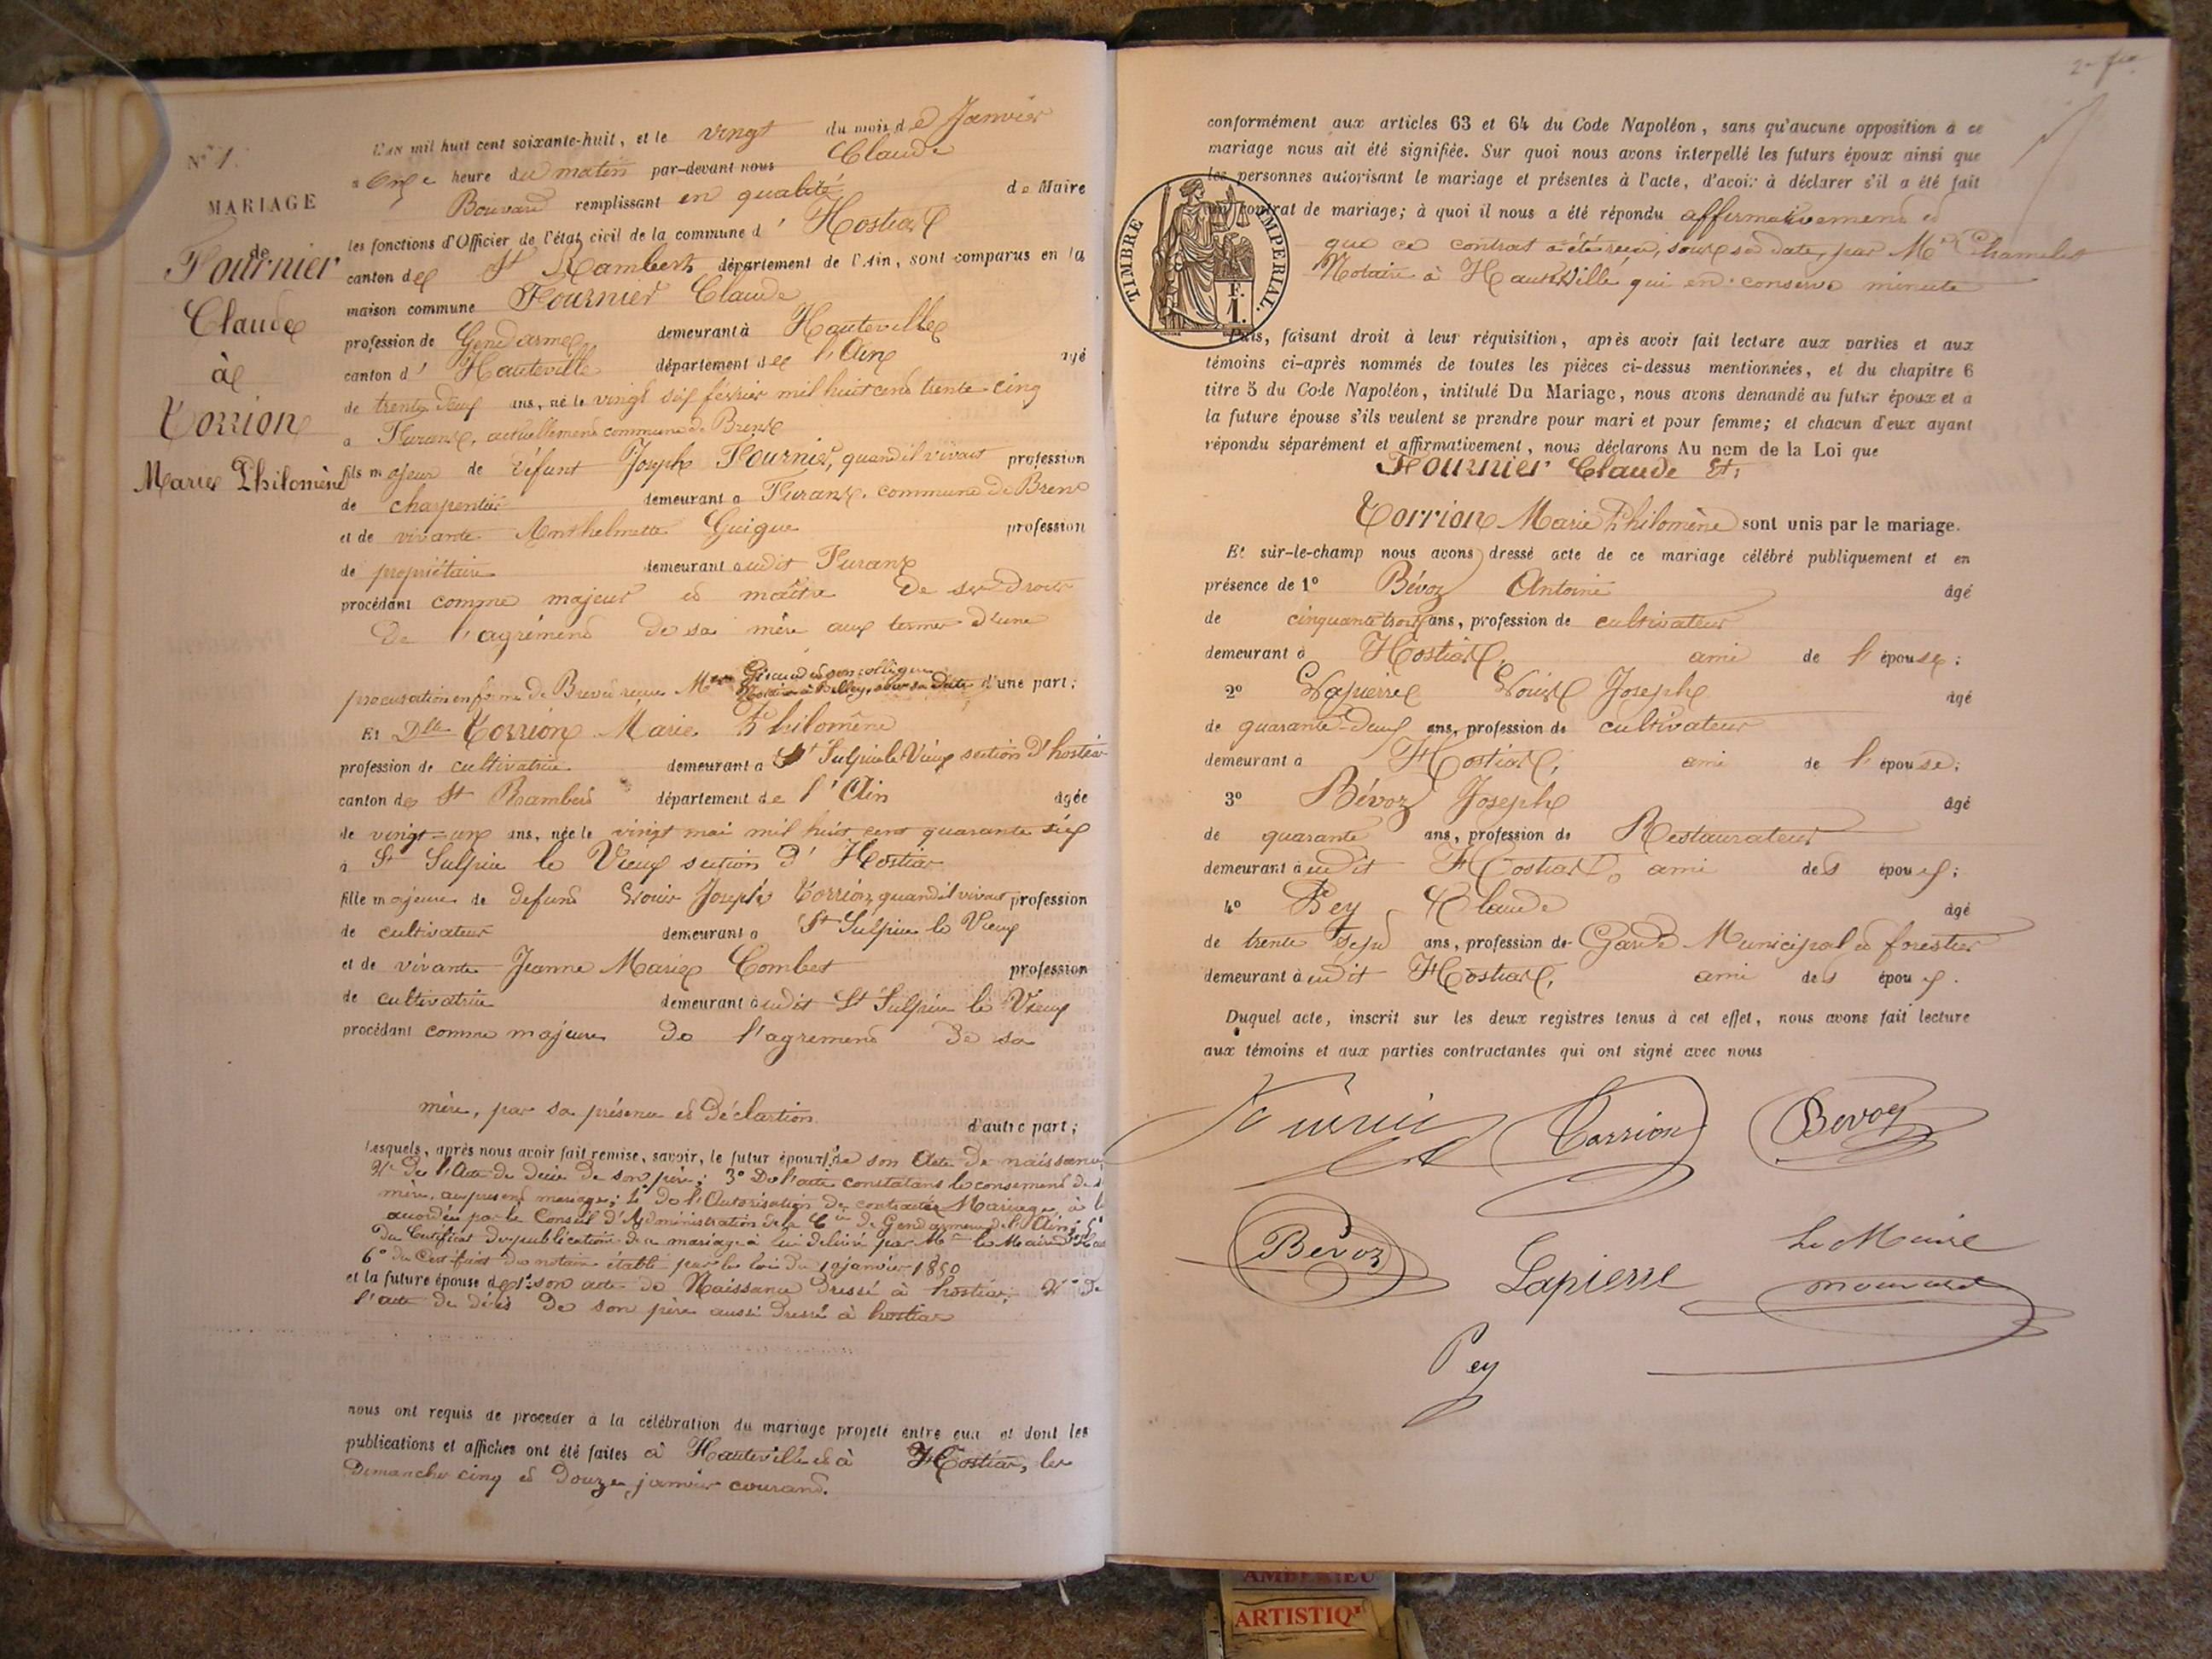 N° 1.
MARIAGE
de
Fournier
Claude
à
Torrion
Marie Philomène
L'an mil huit cent soixante-huit, et le vingt du mois de Janvier
à onze heure du matin par-devant nous Claude
Bouvard remplissant en qualité de Maire
les fonctions d'Officier de l'état civil de la commune d' Hostiaz
canton de St Rambert département de l'Ain, sont comparus en la
maison commune Fournier Claude
profession de Gendarme demeurant à Hauteville
canton d' Hauteville département de l'Ain âgé
de trente deux ans, né le vingt six février mil huit cent trente cinq
à Furans, actuellement commune de Brens
fils majeur de défunt Joseph Fournier, quand il vivait profession
de charpentier demeurant à Furans, commune de Brens
et de vivante Anthelmette Guigue profession
de propriétaire demeurant audit Furans
procédant comme majeur et maître de ses droits
De l'agrément de sa mère aux termes d'une
procuration en forme de Brevet reçue Mtres Giraud et son collègue
Notaire à Belley, sous sa date d'une part;
Et Dlle Torrion Marie Philomène
profession de cultivatrice demeurant à St Sulpice le Vieux section d'hostiaz
canton de St Rambert département de l'Ain âgée
de vingt-un ans, née le vingt mai mil huit cent quarante six
à St Sulpice le Vieux section d'Hostiaz
fille majeure de défunt Louis Joseph Torrion, quand il vivait profession
de cultivateur demeurant à St Sulpice le Vieux
et de vivante Jeanne Marie Combet profession
de cultivatrice demeurant audit St Sulpice le Vieux
procédant comme majeure de l'agrément de sa
mère, par sa présence et déclartion d'autre part;
Lesquels, après nous avoir fait remise, savoir, le futur époux 1° de son Acte de naissance,
2° de l'Acte de décès de son père; 3° De l'acte constatant le consement de sa
mère, au présent mariage; 4° de l'Autorisation de contracter Mariage, à lui
accordée par le Conseil d'Administration de la Cie de Gendarmerie de l'Ain; 5°
du Certificat de publication de ce mariage à lui délivré par Mr le Maire
6° du Certificat du notaire établi par la loi du 10 janvier 1850
et la future épouse de 1° son acte de Naissance dressé à hostiaz; 2° de
l'acte de décès de son père aussi dressé à hostiaz
nous ont requis de procéder à la célébration du mariage projeté entre eux et dont les
publications et affiches ont été faites à Hauteville et à Hostiaz, les
Dimanches cinq et douze janvier courant.
conformément aux articles 63 et 64 du Code Napoléon, sans qu'aucune opposition à ce
mariage nous ait été signifiée. Sur quoi nous avons interpellé les futurs époux ainsi que
les personnes autorisant le mariage et présentes à l'acte, d'avoir à déclarer s'il a été fait
un contrat de mariage; à quoi il nous a été répondu affirmativement et
que ce contrat a été reçu, sous sa date, par Me Chamelet
Notaire à Hauteville qui en conserve minute
TIMBRE IMPERIAL.
F.
1.
Puis, faisant droit à leur réquisition, après avoir fait lecture aux parties et aux
témoins ci-après nommés de toutes les pièces ci-dessus mentionnées, et du chapitre 6
titre 5 du Code Napoléon, intitulé Du Mariage, nous avons demandé au futur époux et à
la future épouse s'ils veulent se prendre pour mari et pour femme; et chacun d'eux ayant
répondu séparément et affirmativement, nous déclarons Au nom de la Loi que
Fournier Claude Et,
Torrion Marie Philomène sont unis par le mariage.
Et sur-le-champ nous avons dressé acte de ce mariage célébré publiquement et en
présence de 1° Bévoz Antoine âgé
de cinquante trois ans, profession de cultivateur
demeurant à Hostiaz, ami de l'épouse;
2° Lapierre Louis Joseph âgé
de quarante-deux ans, profession de cultivateur
demeurant à Hostiaz, ami de l'épouse;
3° Bévoz Joseph âgé
de quarante ans, profession de Restaurateur
demeurant audit Hostiaz, ami des époux;
4° Pey Claude âgé
de trente sept ans, profession de Garde Municipal et forestier
demeurant audit Hostiaz, ami des époux.
Duquel acte, inscrit sur les deux registres tenus à cet effet, nous avons fait lecture
aux témoins et aux parties contractantes qui ont signé avec nous
Fournier Torrion Bevoz
Bévoz Lapierre Le Maire
Bouvard
Pey
AMBERIEU
ARTISTIQ